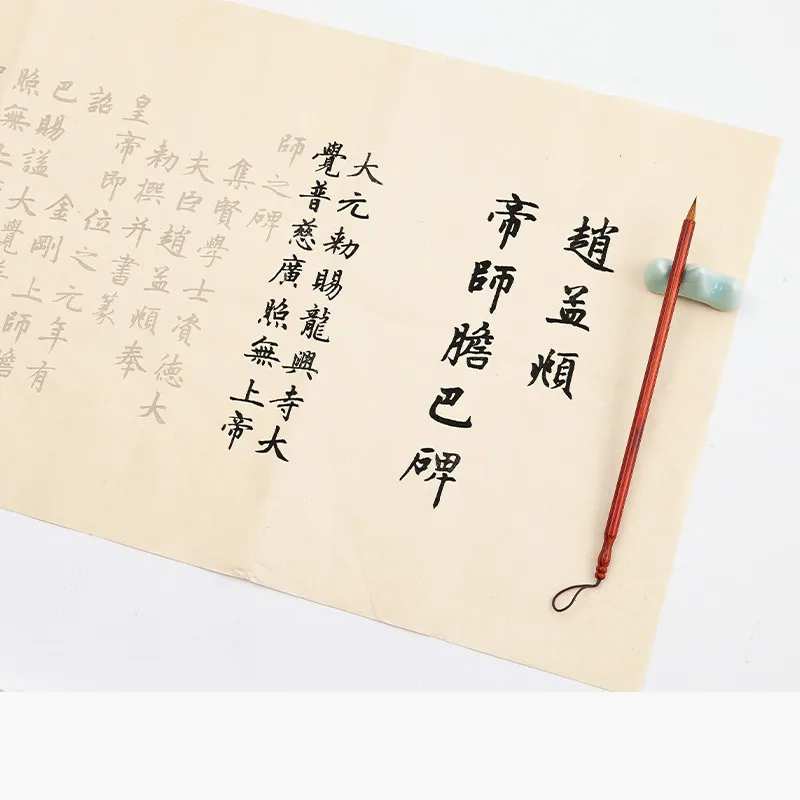 趙孟頫
帝師膽巴碑
大元勅賜龍興寺大
覺普慈廣照無上帝
師之碑
集賢學士資德大
夫臣趙孟頫奉
勅撰并書篆
皇帝即位之元年有
詔金剛上師膽
巴賜謚大覺
照無上